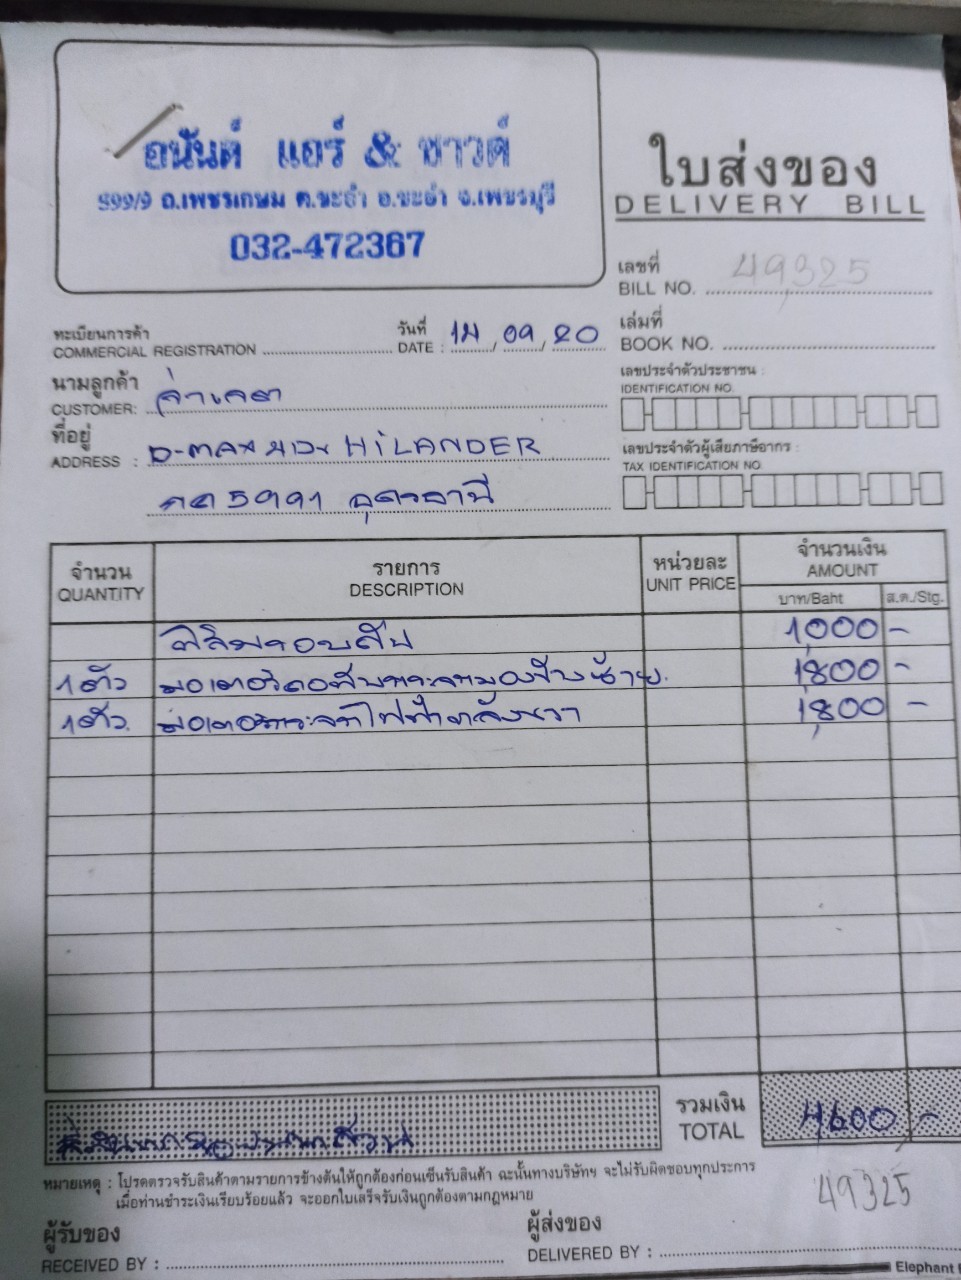 อนันต์ แอร์ & ซาวด์
599/9 ถ.เพชรเกษม ต.ชะอำ อ.ชะอำ จ.เพชรบุรี
032-472367
ใบส่งของ
DELIVERY BILL
เลขที่
BILL NO. 49325
ทะเบียนการค้า
COMMERCIAL REGISTRATION
วันที่
DATE : 14, 09, 20
เล่มที่
BOOK NO.
นามลูกค้า
CUSTOMER: จ่า
เลขประจำตัวประชาชน :
IDENTIFICATION NO.
ที่อยู่
ADDRESS : D-MAX HiLANDER
5991 อุดรธานี
เลขประจำตัวผู้เสียภาษีอากร :
TAX IDENTIFICATION NO.
จำนวน
QUANTITY
รายการ
DESCRIPTION
หน่วยละ
UNIT PRICE
จำนวนเงิน
AMOUNT
บาท/Baht
ส.ต./Stg.
ฟิล์มรอบคัน 1,000 -
1 ตัว มอเตอร์ กระจกมองข้างซ้าย 1,800 -
1 ตัว มอเตอร์กระจกไฟฟ้าหลังขวา 1,800 -
รวมเงิน
TOTAL 4,600 -
หมายเหตุ : โปรดตรวจรับสินค้าตามรายการข้างต้นให้ถูกต้องก่อนเซ็นรับสินค้า ฉะนั้นทางบริษัทฯ จะไม่รับผิดชอบทุกประการ
เมื่อท่านชำระเงินเรียบร้อยแล้ว จะออกใบเสร็จรับเงินถูกต้องตามกฎหมาย
49325
ผู้รับของ
RECEIVED BY :
ผู้ส่งของ
DELIVERED BY :
Elephant